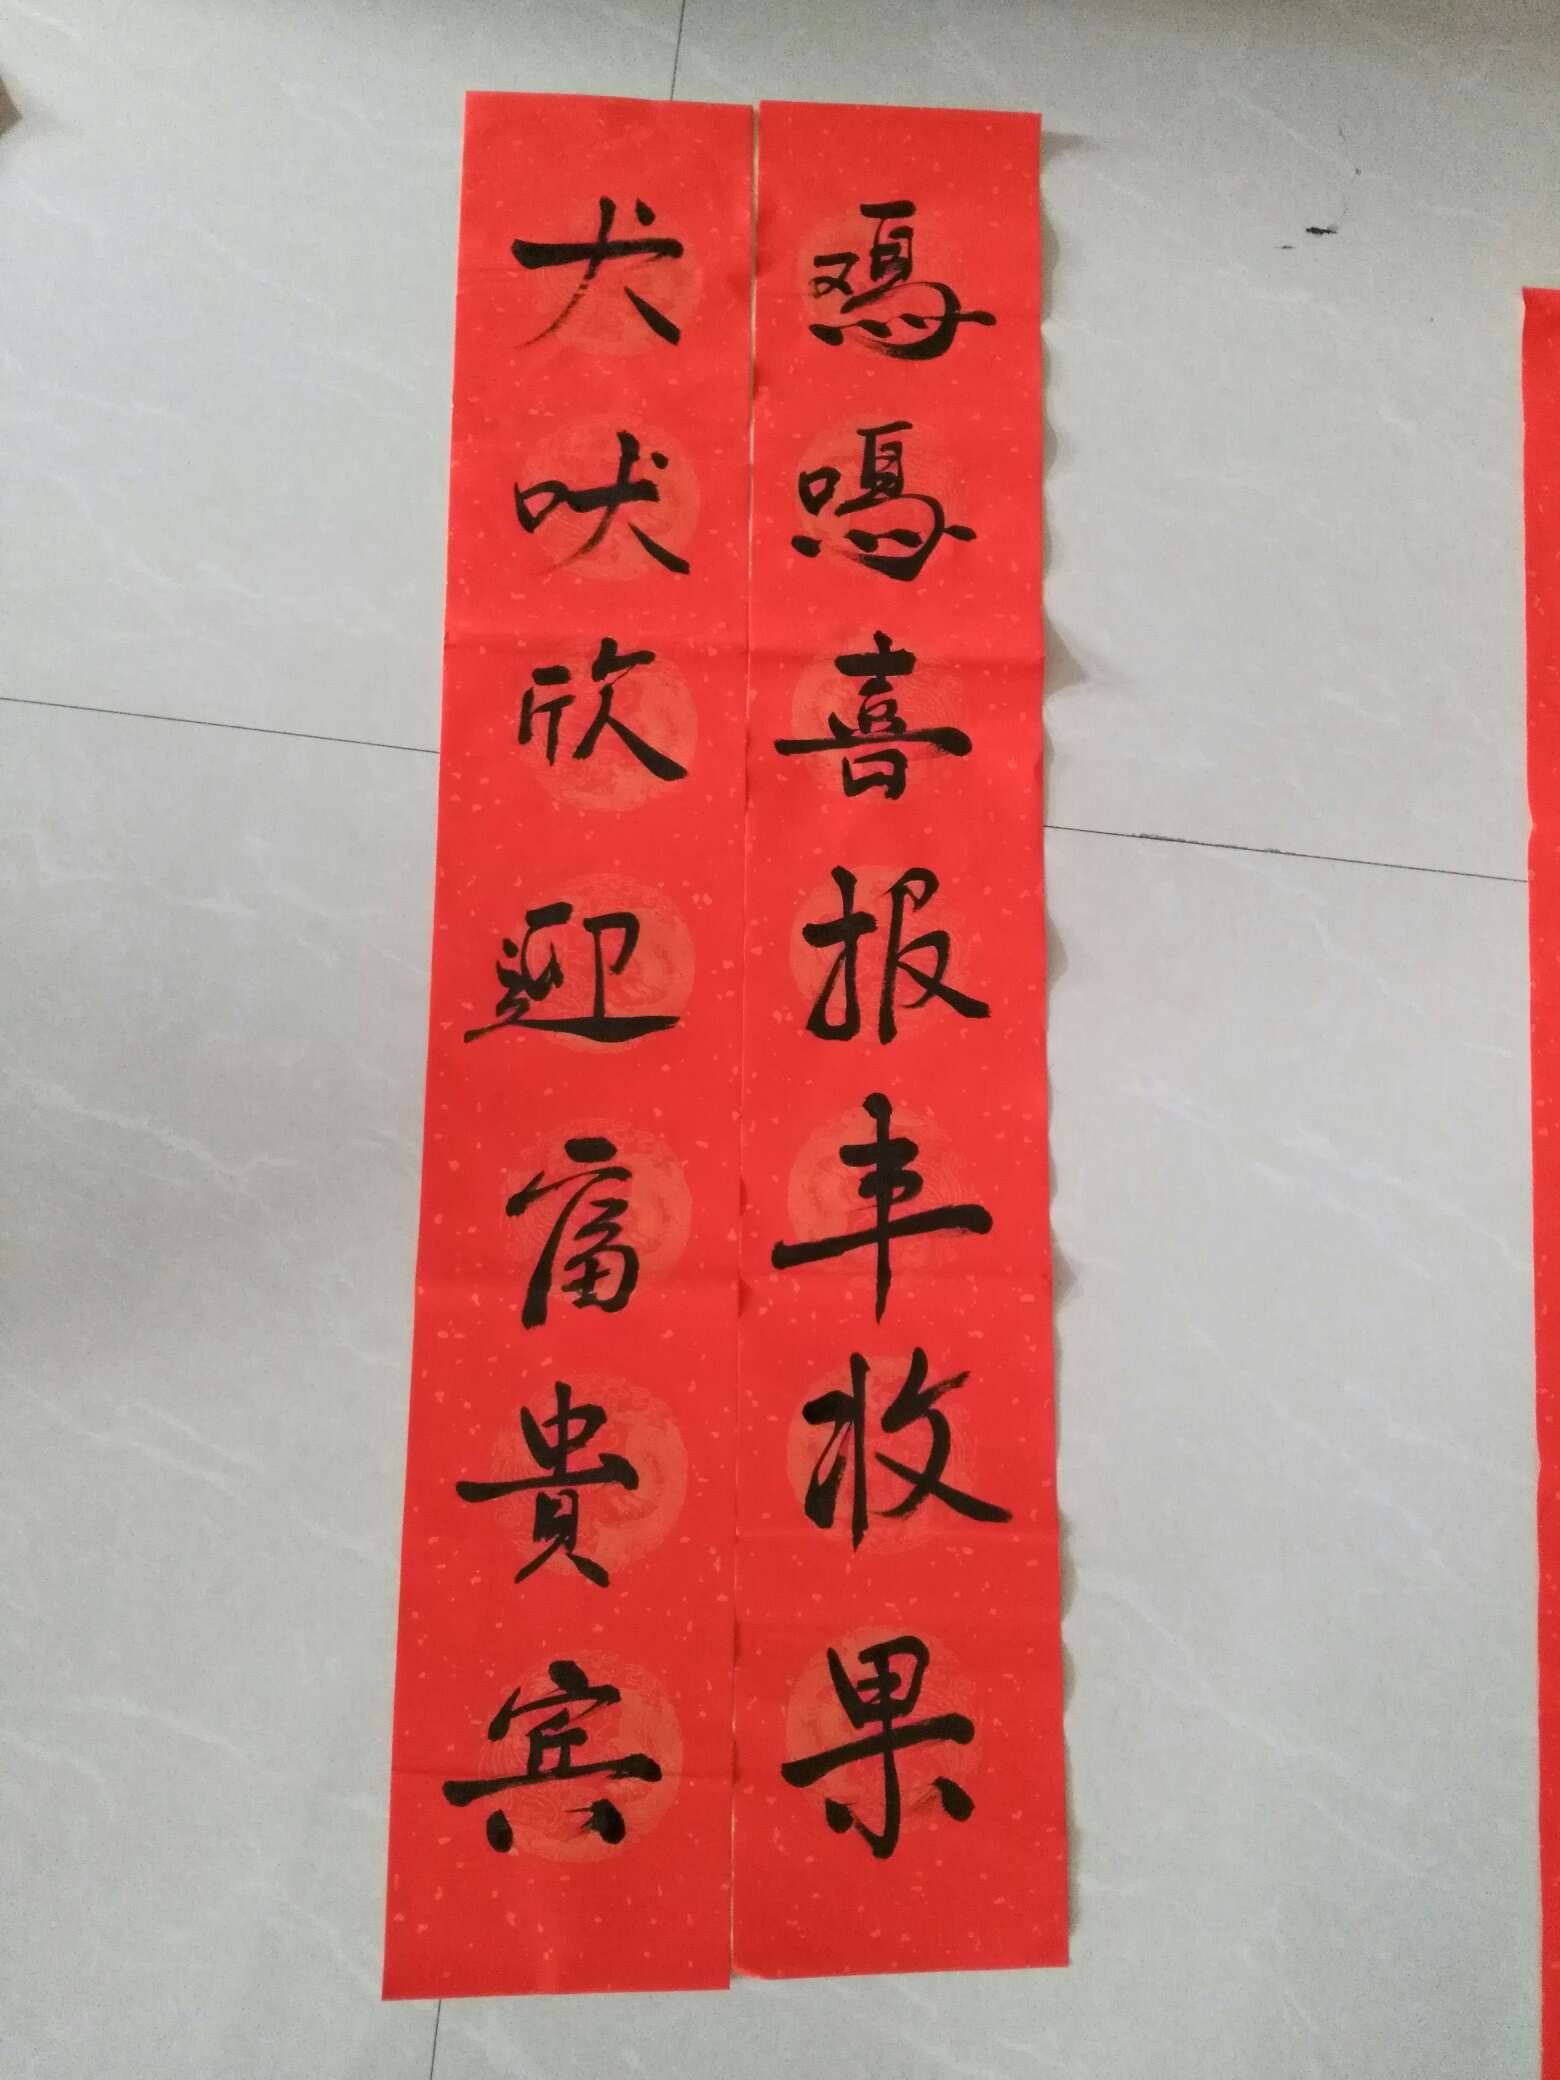 鸡鸣喜报丰收果
犬吠欣迎富貴宾